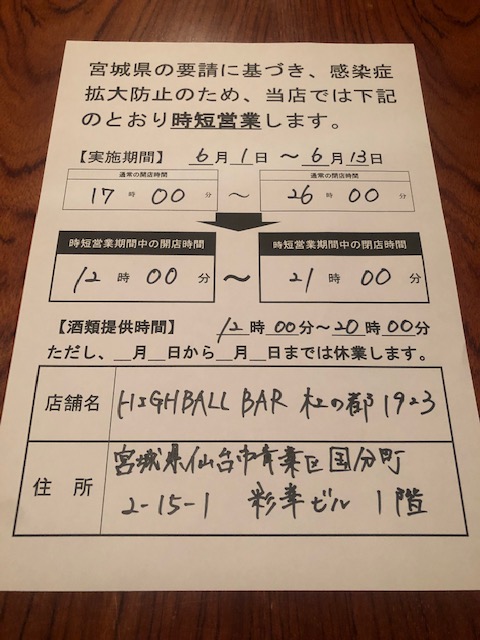 宮城県の要請に基づき、感染症
拡大防止のため、当店では下記
のとおり時短営業します。
【実施期間】 6月1日 ～6月13日
通常の開店時間 通常の閉店時間
17時00分 ～ 26時00分
時短営業期間中の開店時間 時短営業期間中の閉店時間
12時00分 ～ 21時00分
【酒類提供時間】 12時00分～20時00分
ただし、＿月＿日から＿月＿日までは休業します。
店舗名 HIGHBALL BAR 杜の都 1923
住所 宮城県仙台市青葉区国分町
2-15-1 彩華ビル 1階